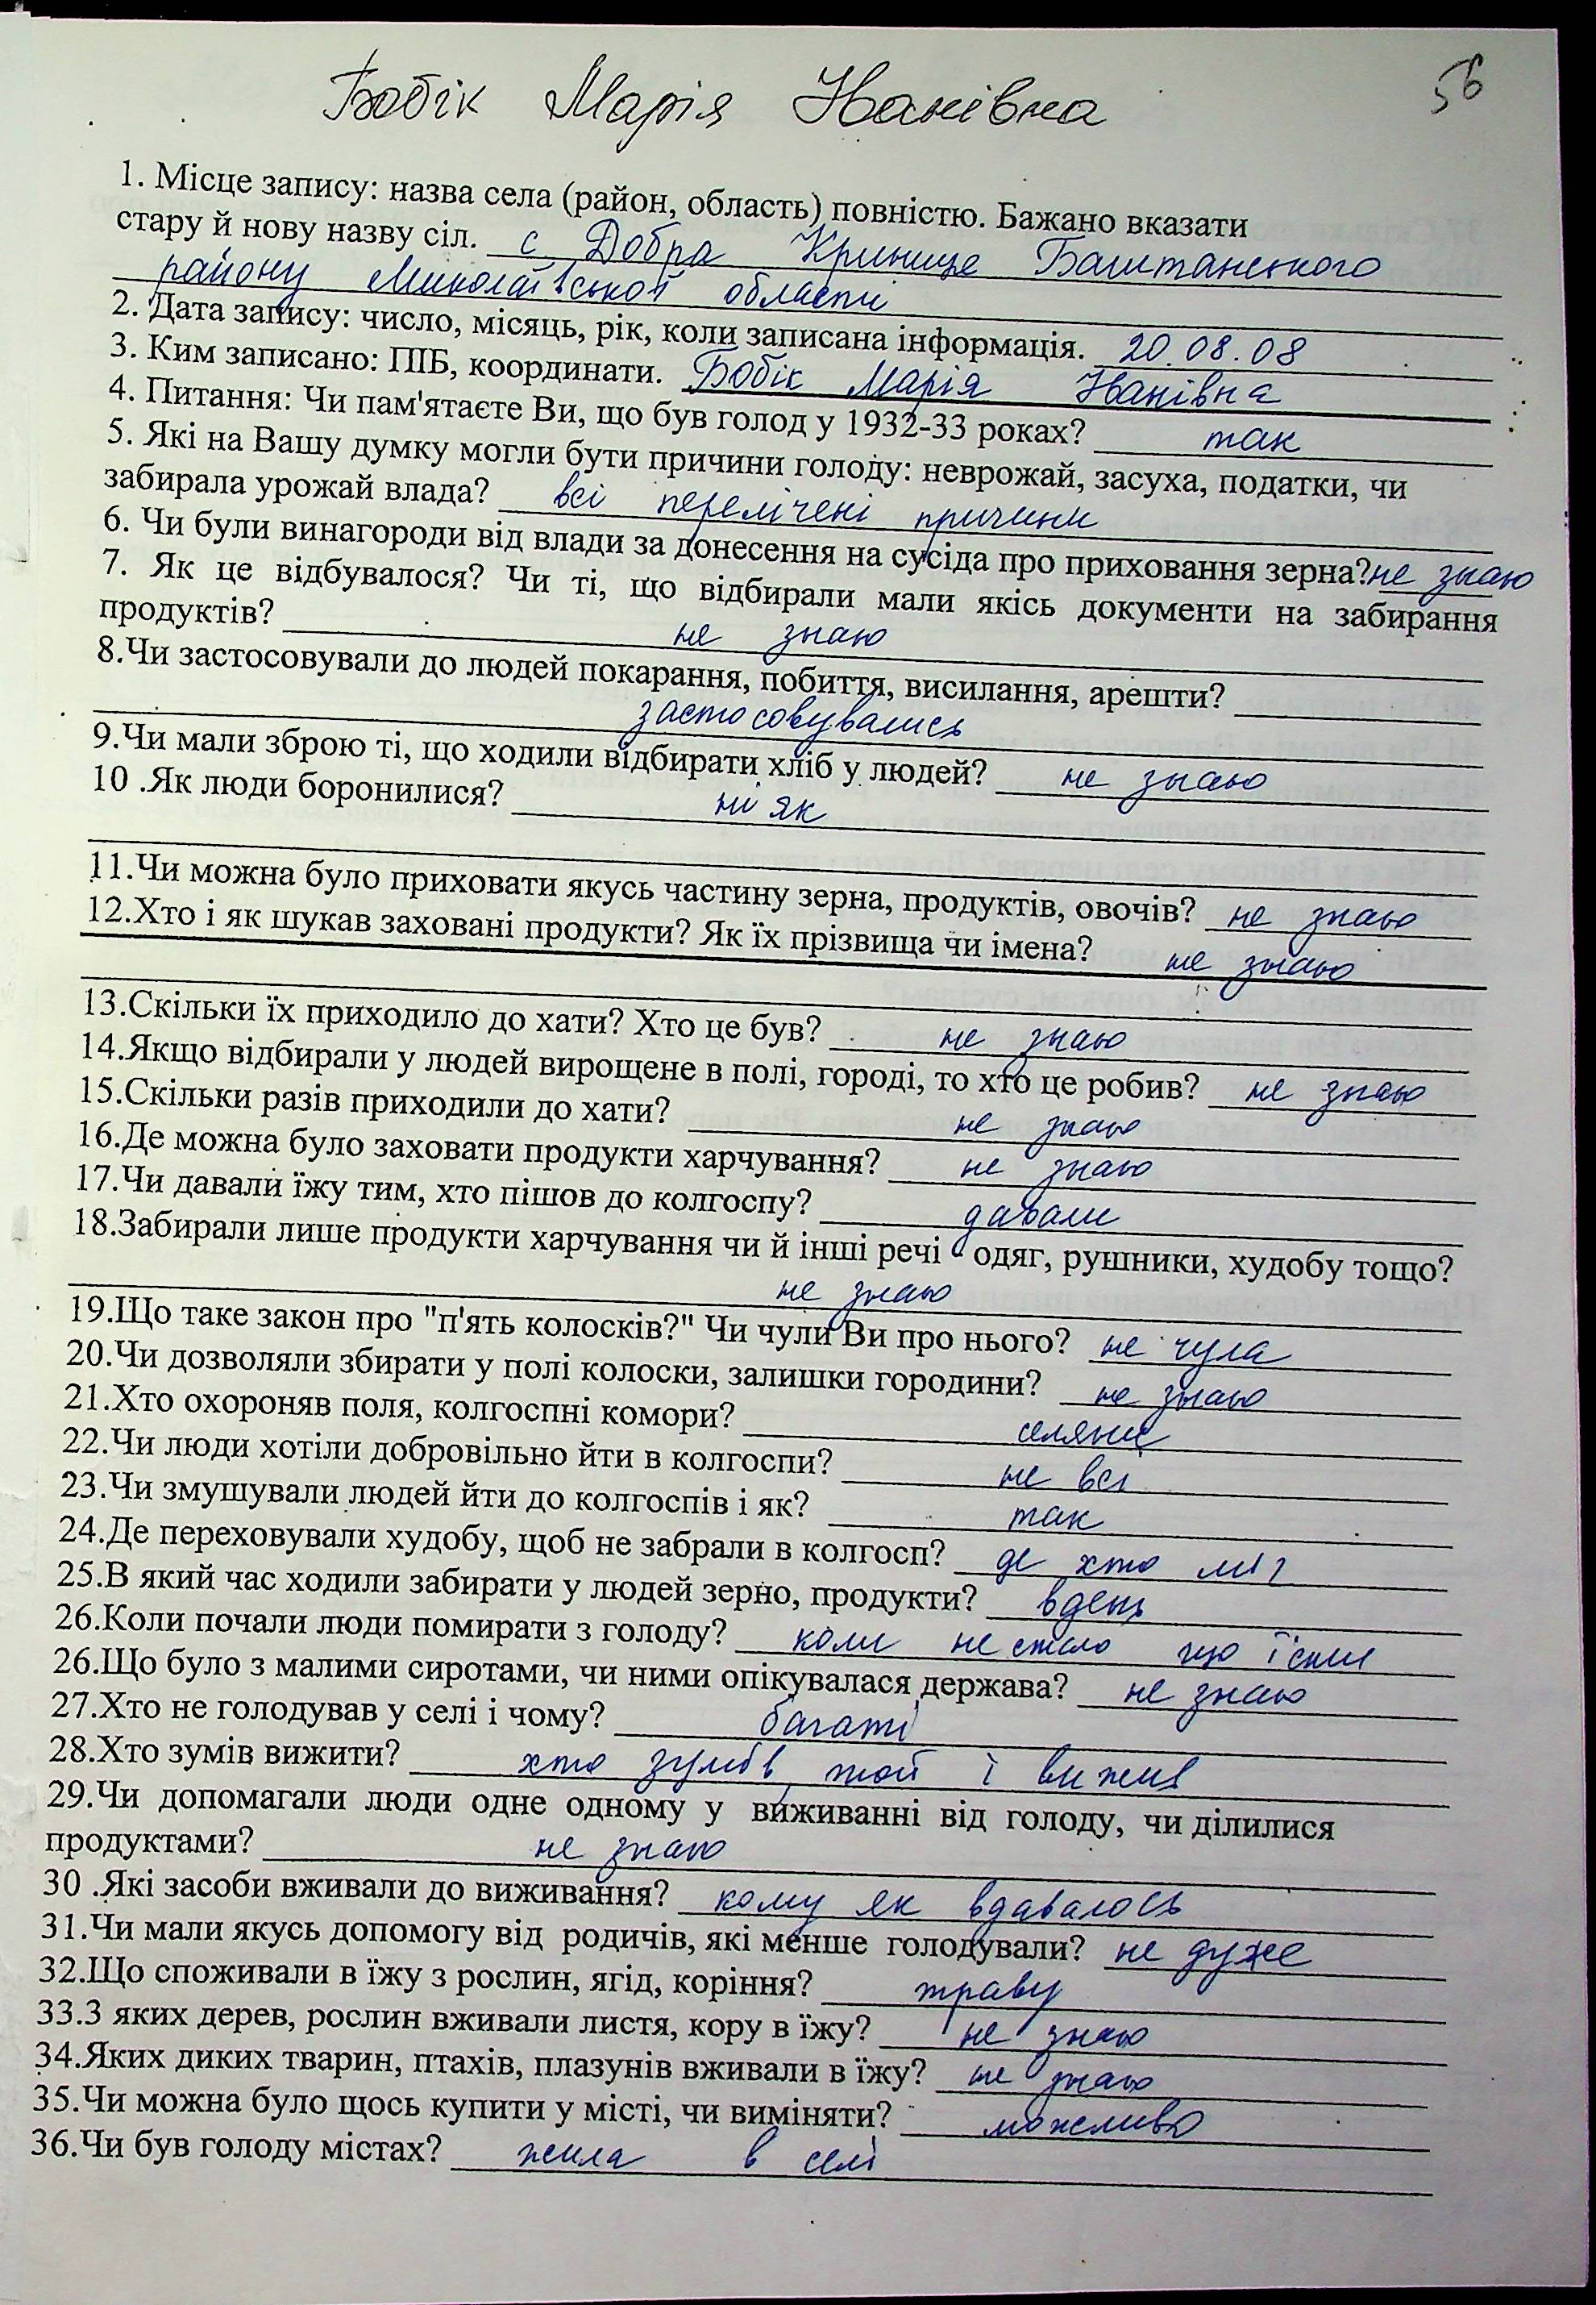 56
Бобік Марія Іванівна
1. Місце запису: назва села (район, область) повністю. Бажано вказати
стару й нову назву сіл. с Добра Криниця Баштанського
району Миколаївської області
2. Дата запису: число, місяць, рік, коли записана інформація. 20.08.08
3. Ким записано: ПІБ, координати. Бобік Марія Іванівна
4. Питання: Чи пам'ятаєте Ви, що був голод у 1932-33 роках? так
5. Які на Вашу думку могли бути причини голоду: неврожай, засуха, податки, чи
забирала урожай влада? всі перелічені причини
6. Чи були винагороди від влади за донесення на сусіда про приховання зерна? не знаю
7. Як це відбувалося? Чи ті, що відбирали мали якісь документи на забирання
продуктів? не знаю
8.Чи застосовували до людей покарання, побиття, висилання, арешти?
застосовувались
9.Чи мали зброю ті, що ходили відбирати хліб у людей? не знаю
10 .Як люди боронилися? ні як
11.Чи можна було приховати якусь частину зерна, продуктів, овочів? не знаю
12.Хто і як шукав заховані продукти? Як їх прізвища чи імена? не знаю
13.Скільки їх приходило до хати? Хто це був? не знаю
14.Якщо відбирали у людей вирощене в полі, городі, то хто це робив? не знаю
15.Скільки разів приходили до хати? не знаю
16.Де можна було заховати продукти харчування? не знаю
17.Чи давали їжу тим, хто пішов до колгоспу? давали
18.Забирали лише продукти харчування чи й інші речі - одяг, рушники, худобу тощо?
не знаю
19.Що таке закон про "п'ять колосків?" Чи чули Ви про нього? не чула
20.Чи дозволяли збирати у полі колоски, залишки городини? не знаю
21.Хто охороняв поля, колгоспні комори? селяни
22.Чи люди хотіли добровільно йти в колгоспи? не всі
23.Чи змушували людей йти до колгоспів і як? так
24.Де переховували худобу, щоб не забрали в колгосп? де хто міг
25.В який час ходили забирати у людей зерно, продукти? вдень
26.Коли почали люди помирати з голоду? коли не стало що їсти
26.Що було з малими сиротами, чи ними опікувалася держава? не знаю
27.Хто не голодував у селі і чому? багаті
28.Хто зумів вижити? хто зумів, той і вижив
29.Чи допомагали люди одне одному у виживанні від голоду, чи ділилися
продуктами? не знаю
30 .Які засоби вживали до виживання? кому як вдавалось
31.Чи мали якусь допомогу від родичів, які менше голодували? не дуже
32.Що споживали в їжу з рослин, ягід, коріння? траву
33.З яких дерев, рослин вживали листя, кору в їжу? не знаю
34.Яких диких тварин, птахів, плазунів вживали в їжу? не знаю
35.Чи можна було щось купити у місті, чи виміняти? можливо
36.Чи був голоду містах? жила в селі